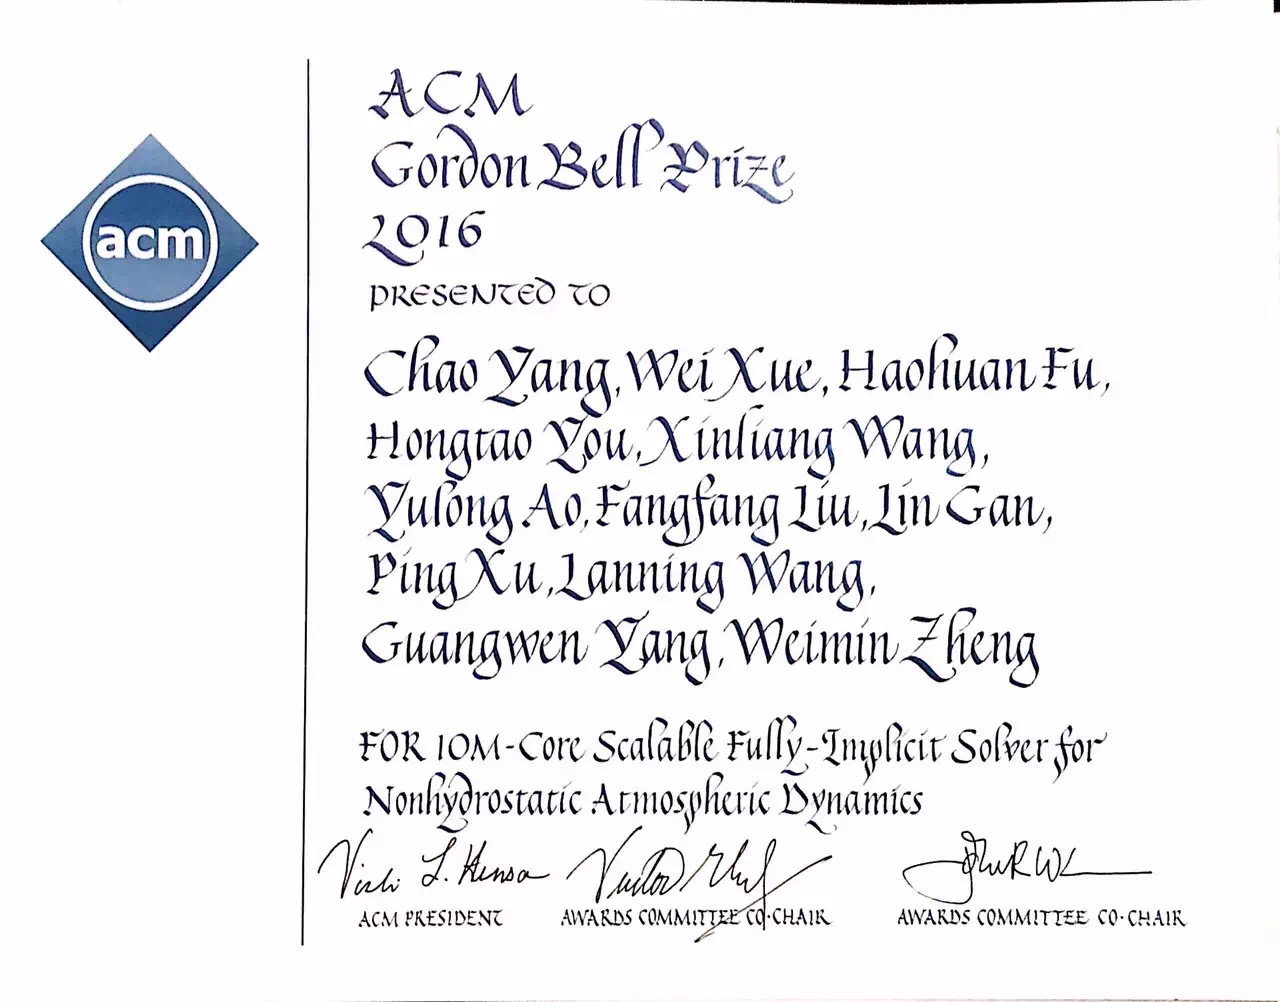 acm
ACM
Gordon Bell Prize
2016
PRESENTED TO
Chao Yang, Wei Xue, Haohuan Fu,
Hongtao You, Xinliang Wang,
Yulong Ao, Fangfang Liu, Lin Gan,
Ping Xu, Lanning Wang,
Guangwen Yang, Weimin Zheng
FOR 10M-Core Scalable Fully-Implicit Solver for
Nonhydrostatic Atmospheric Dynamics
Vicki L. Hanson
ACM PRESIDENT
AWARDS COMMITTEE CO-CHAIR
AWARDS COMMITTEE CO-CHAIR